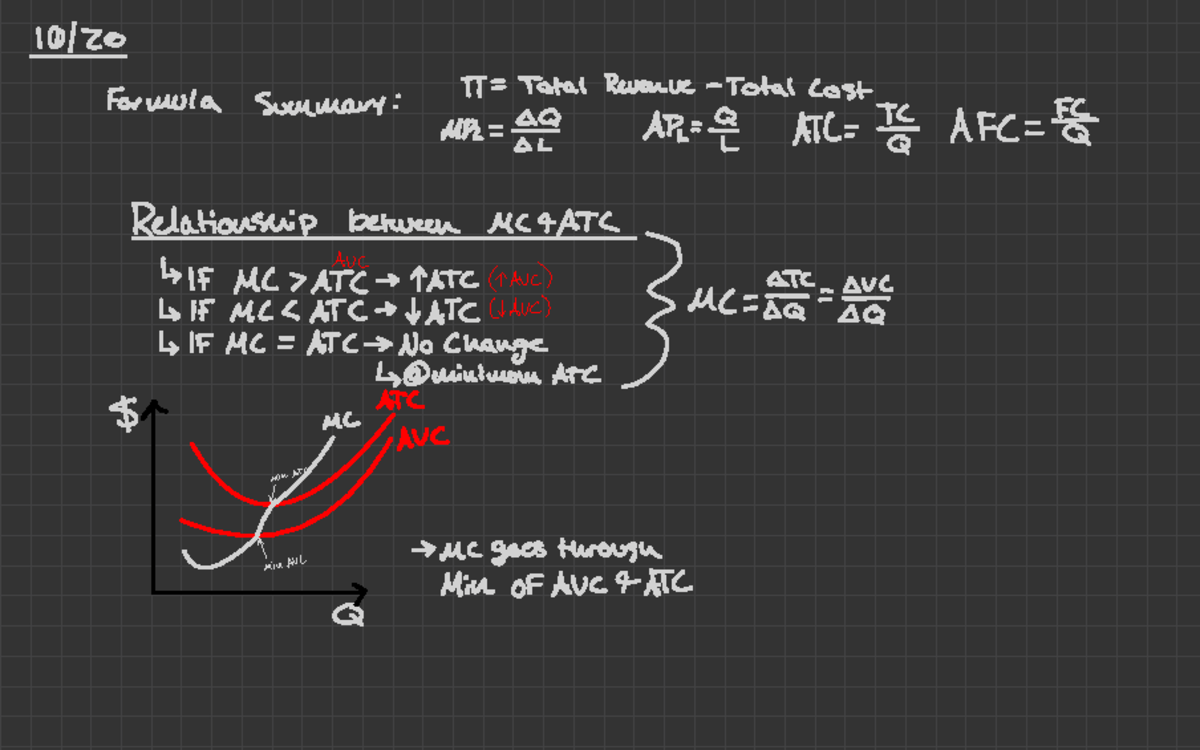 10/20
Π = Total Revenue - Total Cost
Formula Summary:
MPL = ΔQ/ΔL APL = Q/L ATC = TC/Q AFC = FC/Q
Relationship between MC & ATC
AVC
↳ IF MC > ATC → ↑ATC (↑AVC)
↳ IF MC < ATC → ↓ATC (↓AVC)
↳ IF MC = ATC → No Change
↳ @ minimum ATC
MC = ΔTC/ΔQ = ΔVC/ΔQ
$
MC
ATC
AVC
min ATC
Min AVC
Q
→ MC goes through
Min of AVC & ATC